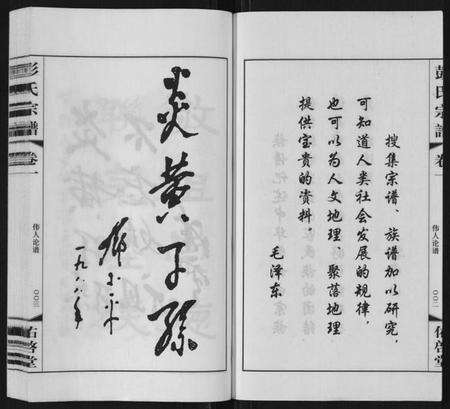 彭氏宗譜
卷一
伟人论谱
００二
佑啓堂
搜集宗谱、族谱加以研究，
可知道人类社会发展的规律，
也可以为人文地理、聚落地理
提供宝贵的资料。
毛泽东
炎黄子孙
邓小平
一九八八年
彭氏宗譜
卷一
伟人论谱
００三
佑啓堂